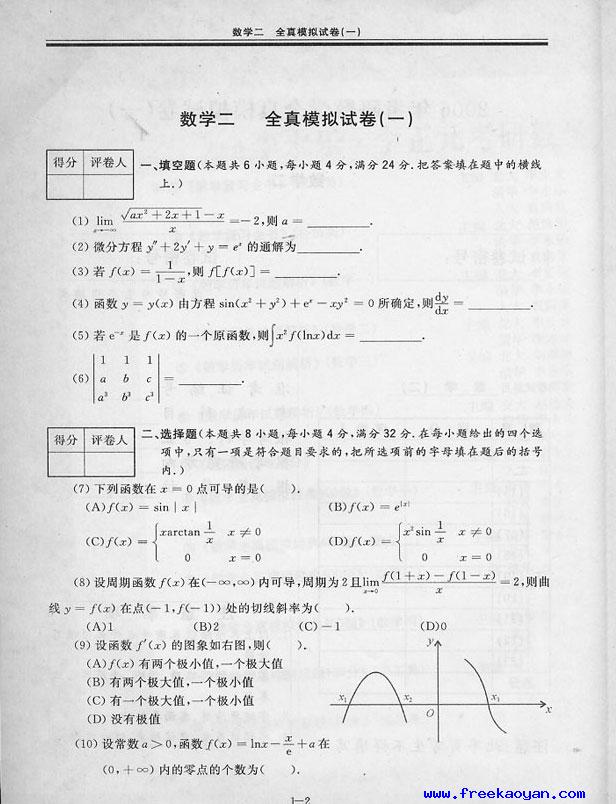 数学二 全真模拟试卷(一)
数学二 全真模拟试卷(一)
得分 评卷人
一、填空题(本题共6小题,每小题4分,满分24分.把答案填在题中的横线
上.)
(1) lim_{x→-∞} (√(ax²+2x+1)-x)/x =-2,则a= ________.
(2) 微分方程 y″+2y′+y=eˣ 的通解为________.
(3) 若 f(x)=1/(1-x),则 f[f(x)]= ________.
(4) 函数 y=y(x) 由方程 sin(x²+y²)+eˣ-xy²=0 所确定,则 dy/dx = ________.
(5) 若 e⁻ˣ 是 f(x) 的一个原函数,则∫x²f(lnx)dx= ________.
(6) |1 1 1|
|a b c| = ________.
|a³ b³ c³|
得分 评卷人
二、选择题(本题共8小题,每小题4分,满分32分.在每小题给出的四个选
项中,只有一项是符合题目要求的,把所选项前的字母填在题后的括号
内.)
(7) 下列函数在 x=0 点可导的是( ).
(A) f(x)=sin|x| (B) f(x)=e^{|x|}
(C) f(x)={xarctan 1/x x≠0 (D) f(x)={x²sin 1/x x≠0
0 x=0 0 x=0
(8) 设周期函数 f(x) 在(-∞,∞) 内可导,周期为2且lim_{x→0} (f(1+x)-f(1-x))/x =2,则曲
线 y=f(x) 在点(-1,f(-1)) 处的切线斜率为( ).
(A)1 (B)2 (C)-1 (D)0
(9) 设函数 f′(x) 的图象如右图,则( ).
(A) f(x) 有两个极小值,一个极大值
(B) 有两个极大值,一个极小值
(C) 有一个极大值,一个极小值
(D) 没有极值
y x₁ x₂ O x₃ x
(10) 设常数 a>0,函数 f(x)=lnx-x/e+a在
(0,+∞) 内的零点的个数为( ).
1—2
www.freekaoyan.com